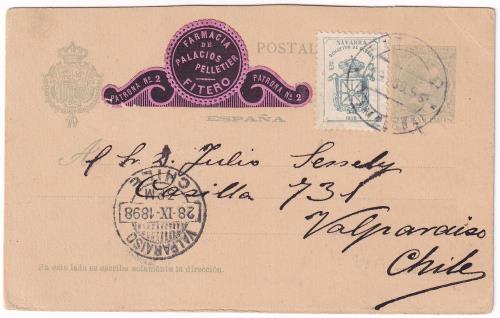 FARMACIA
DE
PALACIOS PELLETIER
FITERO
PATRONA No. 2
PATRONA No. 2
POSTAL
NAVARRA
ESPAÑA
Al Sr. D. Julio Sessely
Casilla 731
Valparaiso
Chile
CHILE
2 PM
28·IX·1898
VALPARAISO
En este lado se escribe solamente la dirección.